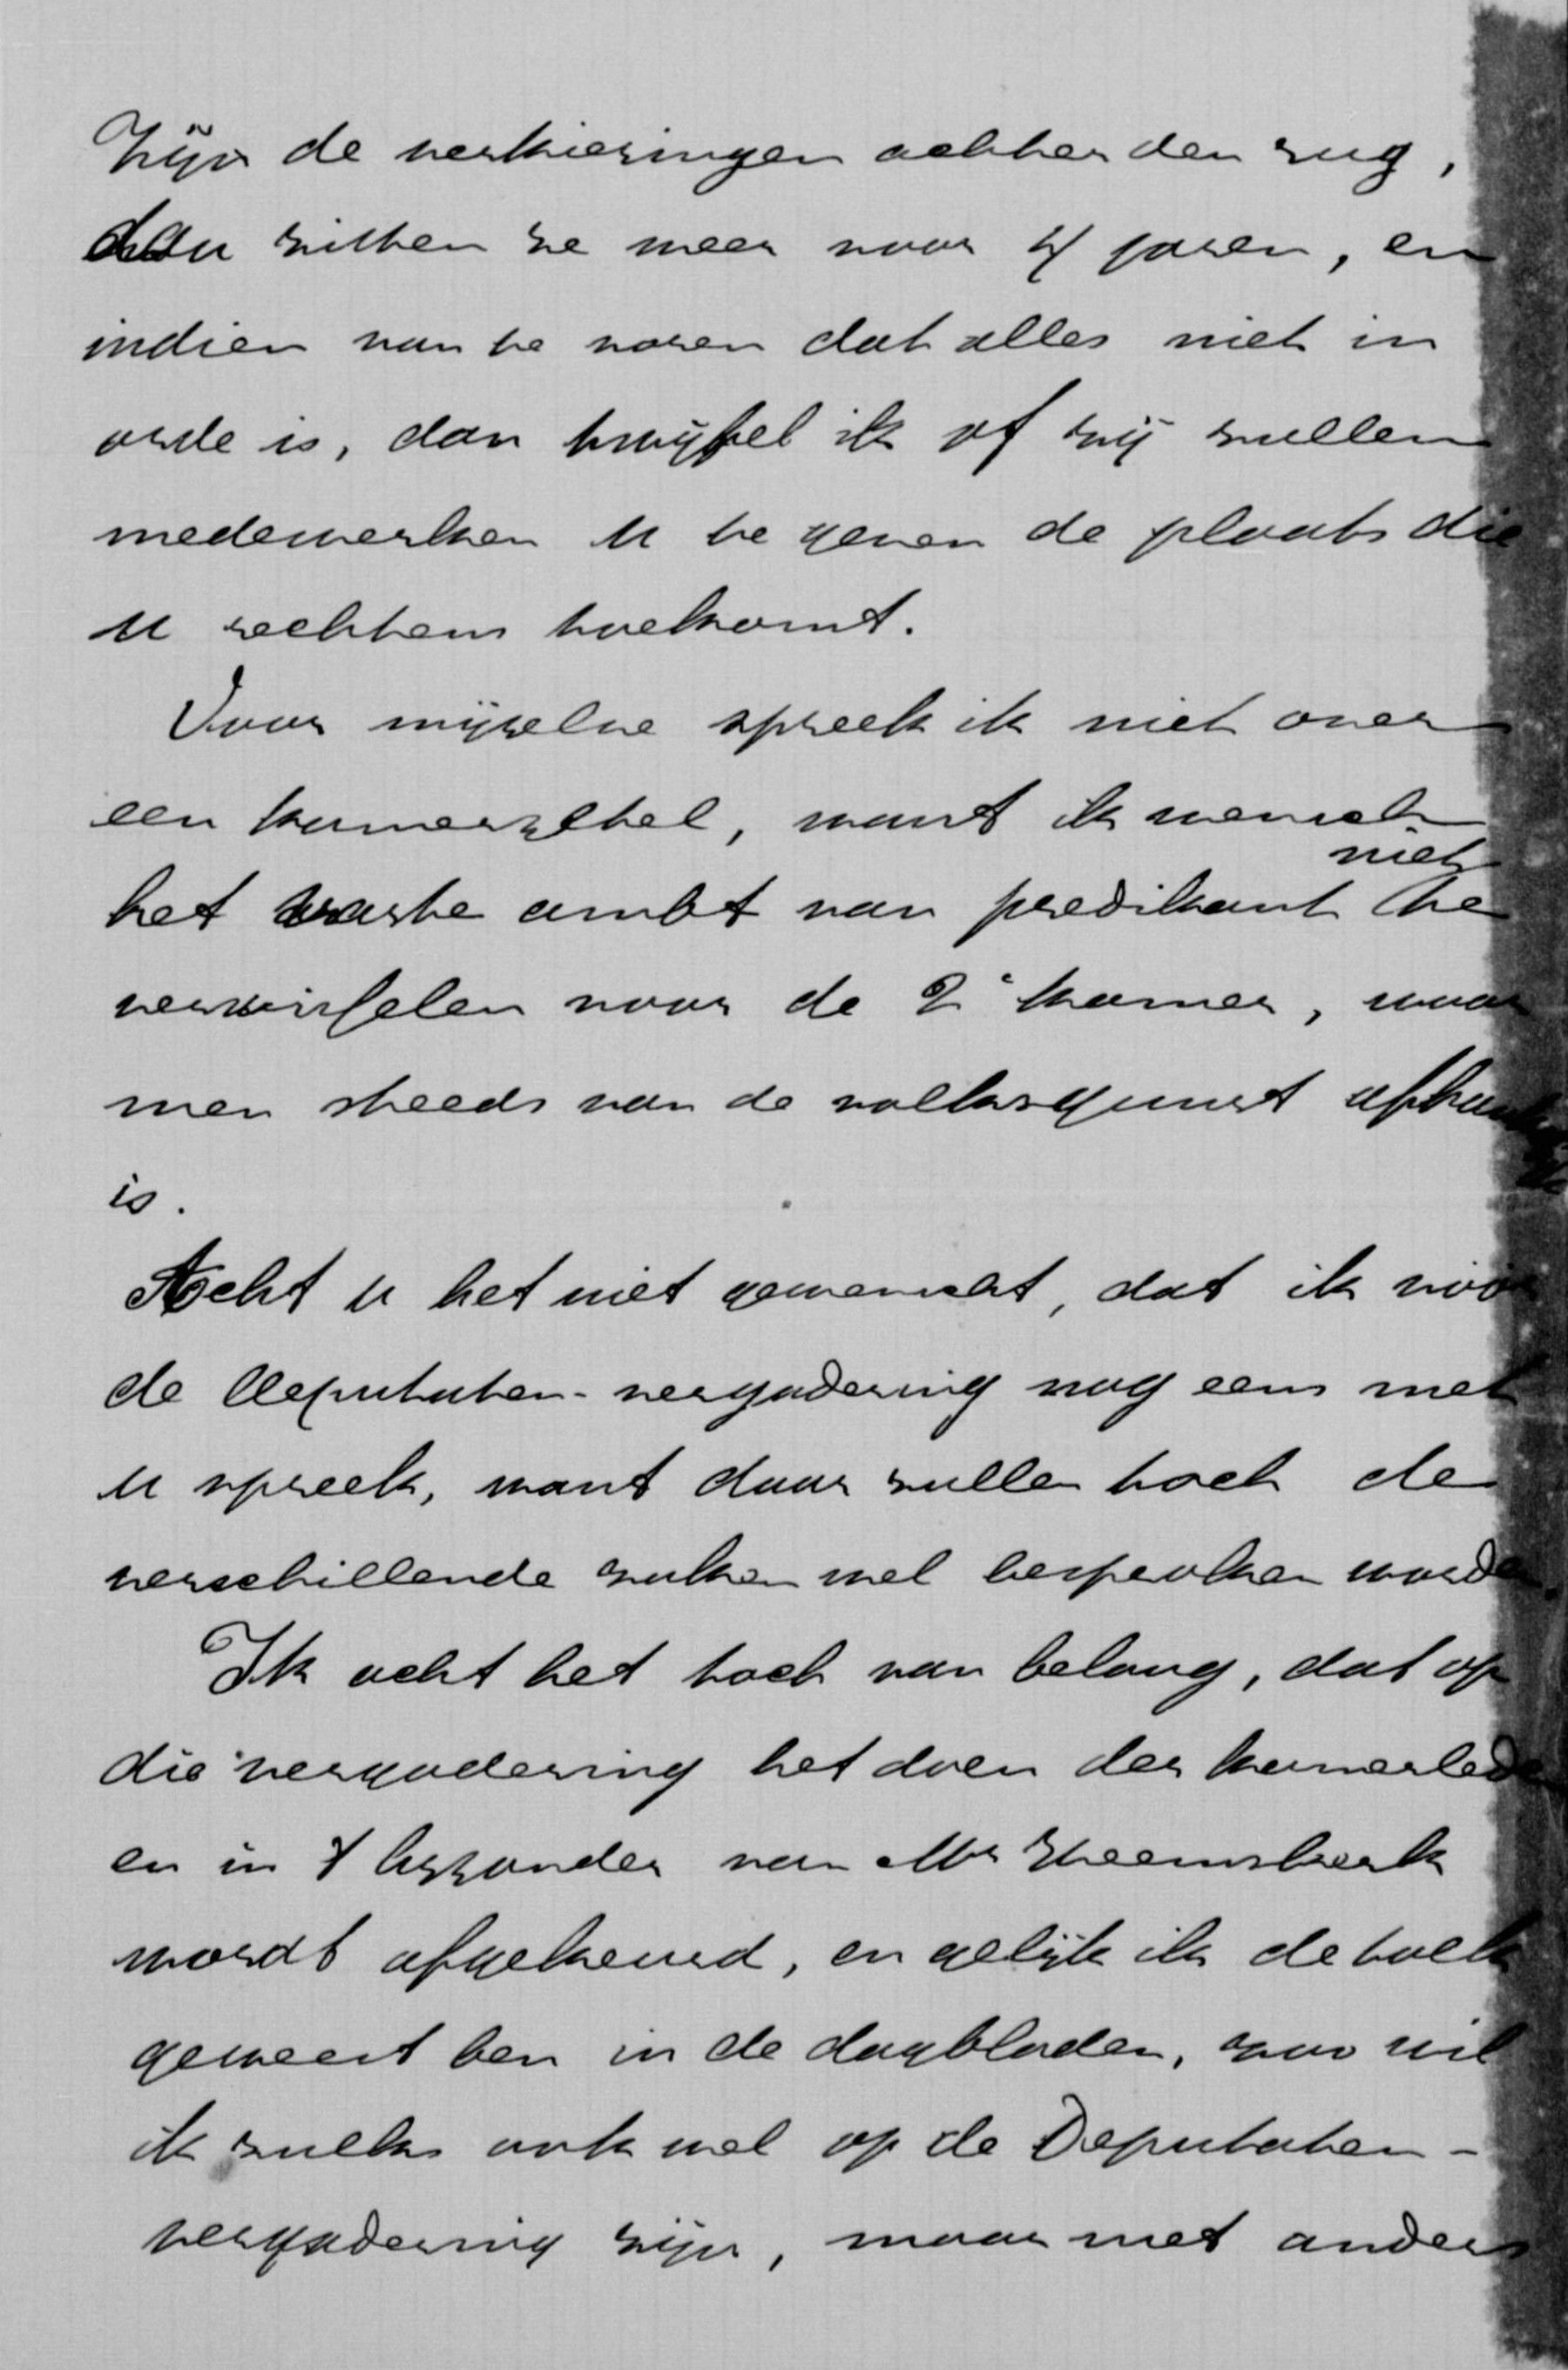 Zijn de verkiezingen achter den rug,
dan zitten ze weer voor 4 jaren, en
indien van te voren dat alles niet in
orde is, dan twijfel ik of zij zullen
medewerken U te geven de plaats die
U rechtens toekomt.
Voor mijzelve spreek ik niet over
een kamerzetel, want ik wensch
niet
het vaste ambt van predikant te
verwisselen voor de 2e kamer, waar
men steeds van de volksgunst afhankelijk
is.
Acht U het niet gewenscht, dat ik vóór
de Deputaten-vergadering nog eens met
U spreek, want daar zullen toch de
verschillende zaken wel besproken worden.
Ik acht het toch van belang, dat op
die vergadering het doen der kamerleden
en in 't bijzonder van Mr Heemskerk
wordt afgekeurd, en gelijk ik de tolk
geweest ben in de dagbladen, zoo wil
ik zulks ook wel op de Deputaten-
vergadering zijn, maar met anders